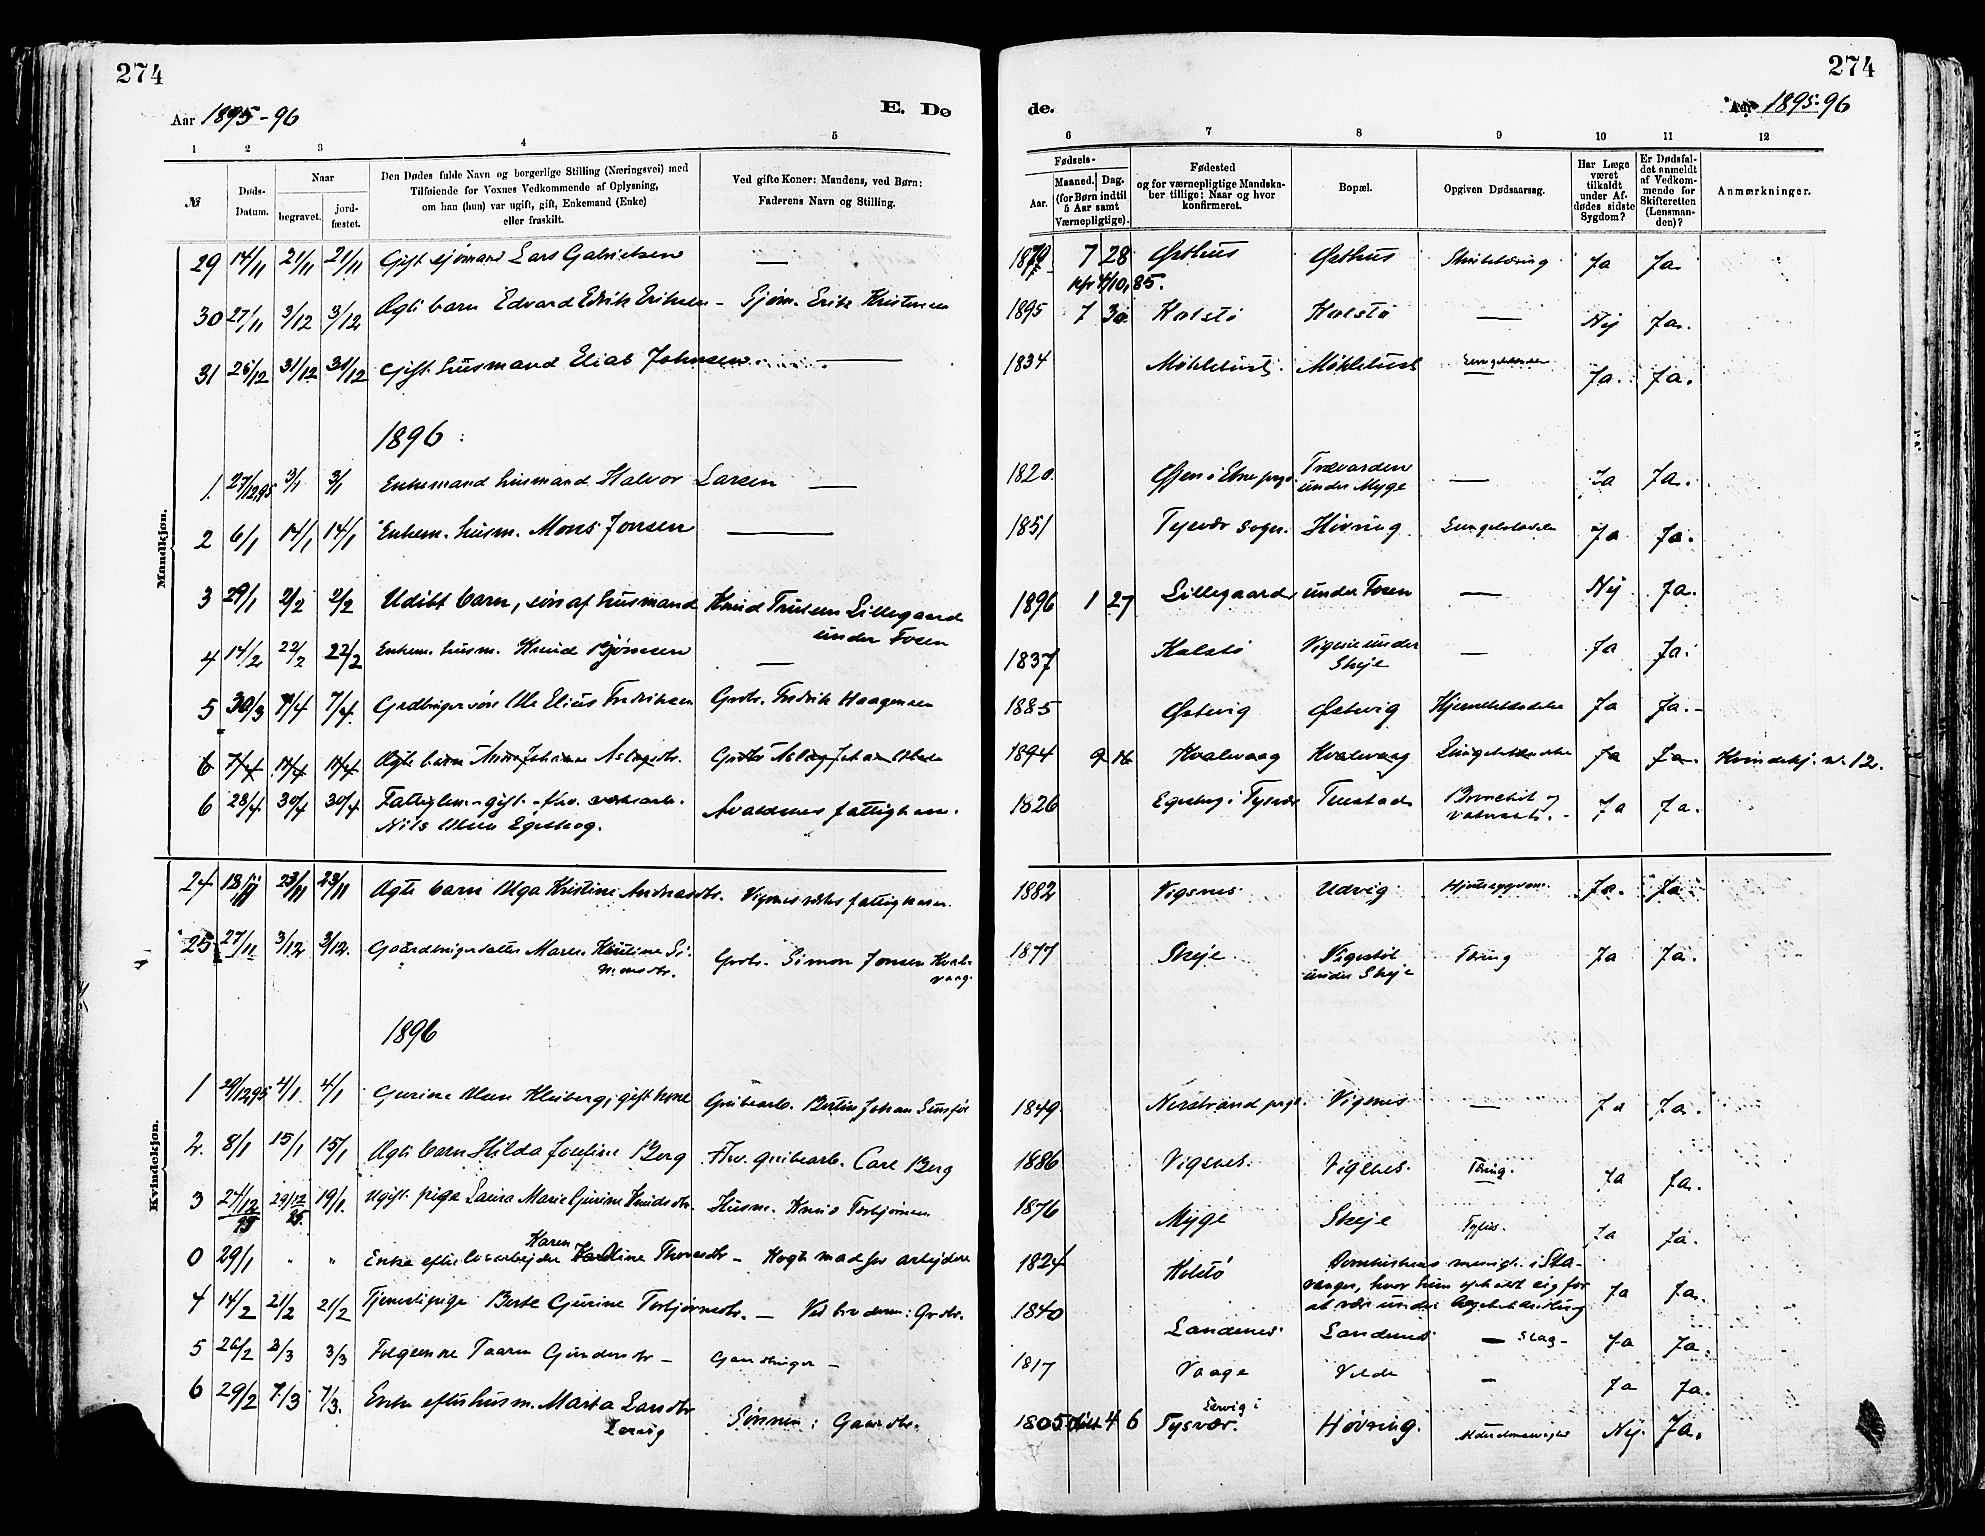 274
Aar 1895-96
E. Dø
1 2 3 4 5
№
Døds-Datum.
Naar
begravet.
jordfæstet.
Den Dødes fulde Navn og borgerlige Stilling (Næringsvei) med
Tilføiende for Voxnes Vedkommende af Oplysning,
om han (hun) var ugift, gift, Enkemand (Enke)
eller fraskilt.
Ved gifte Koner: Mandens, ved Børn:
Faderens Navn og Stilling.
Mandkjøn.
29 14/11 21/11 21/11 Gift sjømand Lars Gabrielsen —
30 27/11 3/12 3/12 Ægte barn Edvard Edrik Eriksen – Sjøm. Erik Kristensen
31 26/12 31/12 31/12 Gift husmand Elias Johnsen. —
1896
1. 27/12 95 3/1 3/1 Enkemand husmand Halvor Larsen —
2 6/1 14/1 14/1 Enkem. husm. Mons Jonsen —
3 29/1 2/2 2/2 Udøbt barn, søn af husmand Knud Trulsen Lillegaard
under Fosen
4 14/2 22/2 22/2 Enkem. husm. Knud Bjørnsen —
5 30/3 7/4 7/4 Gardbruger søn Ole Elius Fredriksen Grdbr. Fredrik Haagensen
6 7/4 14/4 14/4 Ægte barn Anna Johanne Aslagsdtr. Grdbr. Aslag Johan
6 28/4 30/4 30/4 Fattiglem - gift - fhv.
Nils Olsen Egeberg. Avaldsnes fattigkasse.
Kvindekjøn.
24 18/11 23/11 23/11 Ægte barn Olga Kristine Andreasdtr. Vigsnes fattigkasse.
25 27/11 3/12 3/12. Gaardbruger datter Maren Kristine Si-
monsdtr. Grdbr. Simon Jonsen Kval-
vaag.
1896
1 29/12 95 4/1 4/1 Gurine Olsen Kleiberg, gift kone Grubearb. Bertin Johan
2. 8/1 15/1 15/1 Ægte barn Hilda Josefine Berg Fhv. grubearb. Carl Berg
3 24/12 95 29/12 95. 19/1. Ugift pige Laura Marie Gurine Knudsdtr. Husm. Knud Torbjørnsen
Karen
0 29/1 " " Enke efter løsarbejder Thoresdtr – Kogte mad for arbejdere
4 14/2 21/2 21/2 Tjenestepige Berte Gurine Torbjørnsdtr. – Ved broderen: Grdbr.
5 26/2 3/3 3/3 Folgeenke Taaren Gundersdtr – Gaardbruger –
6 29/2 7/3 7/3. Enke efter husm. Marta Larsdtr
Lervig Sønnen: Gaardbr.
274
Aar 1895-96
de.
6 7 8 9 10 11 12
Fødsels-
Aar.
Maaned. Dag.
(for Børn indtil
5 Aar samt
Værnepligtige).
Fødested
og for værnepligtige Mandska-
ber tillige: Naar og hvor
konfirmeret.
Bopæl.
Opgiven Dødsaarsag.
Har Læge
været
tilkaldt
under Af-
dødes sidste
Sygdom?
Er Dødsfal-
det anmeldt
af Vedkom-
mende for
Skifteretten
(Lensman-
den)?
Anmærkninger.
1870 7 28 Østhus Østhus Ja Ja.
4/10, 85.
1895 7 30 Kolstø Kolstø — Nej Ja.
1834 Møhletust. Møhletust Lungebetændelse Ja. Ja.
1820. Ølfjen i Etne prgd. Trævarden
under Myge — Ja Ja.
1851 Tysvær sogn. Høvring Lungebetændelse Ja Ja.
1896 1 27 Lillegaard under Fosen — Nej Ja.
1837 Kolstø Vigene under
Skeje — Ja Ja.
1885 Østevig Østevig Hjernebetændelse Ja Ja.–
1894 9 Kvalavaag Kvalavaag Lungebetændelse Ja Ja Kvindekj. nr. 12.
1826 Egeberg i Tysvær Bronchit og Ja Ja.
1882 Vigsnes Udvig Ja. Ja.
1877 Skeje Vigestøl
under Skeje Tæring Ja Ja.
1849 Nerstrand prgd. Vigsnes — Ja Ja.
1886 Vigsnes. Vigsnes. Tæring. Ja Ja.
1876 Myge Skeje Tyfus. Ja Ja.
1824 Kolstø Domkirkens menigh. i Sta-
vanger, hvor hun opholdt sig for
at være under lægebehandling Ja Ja.
1840 Landenes Landenes — Slag – Ja Ja.
1817 Vaage Velde — Ja Ja.
1805 døbt 4 6 Lervig i
Tysvær. Høvring. Alderdomssvaghed Nej. Ja.